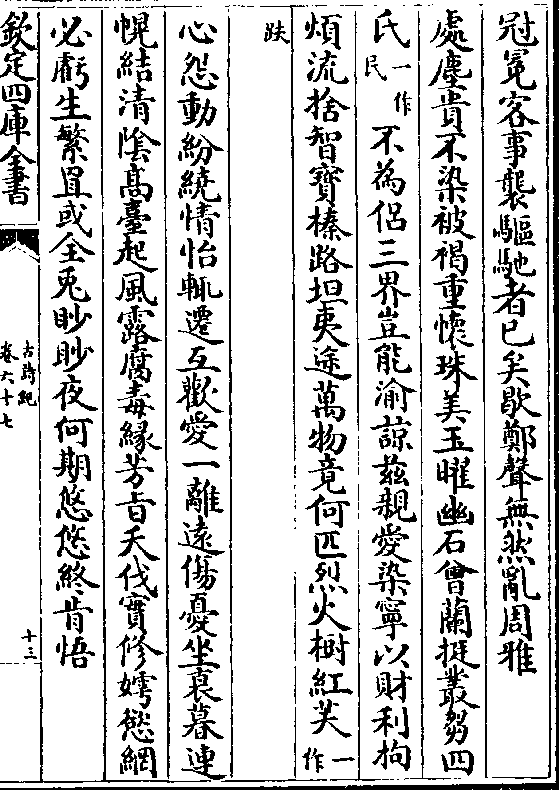 冠冕客事襲驅馳者已矣歇鄭聲無然亂周雅
處塵貴不染被褐重懷珠美玉曜幽石曾蘭挺叢芻四
氏一作民不為侣三界豈能渝諒兹親愛染寧以財利拘
煩流捨智寶榛路坦夷途萬物竟何匹烈火樹紅芙一作
趺
心怨動紛繞情怡輒遷互歡愛一離遠傷憂坐衰暮連
幌結清陰髙臺起風露腐毒緣芳旨天伐實修嫮慾網
必虧生繁罝或全兎眇眇夜何期悠悠終肯悟
欽定四庫全書
古詩紀
卷六十七
十三